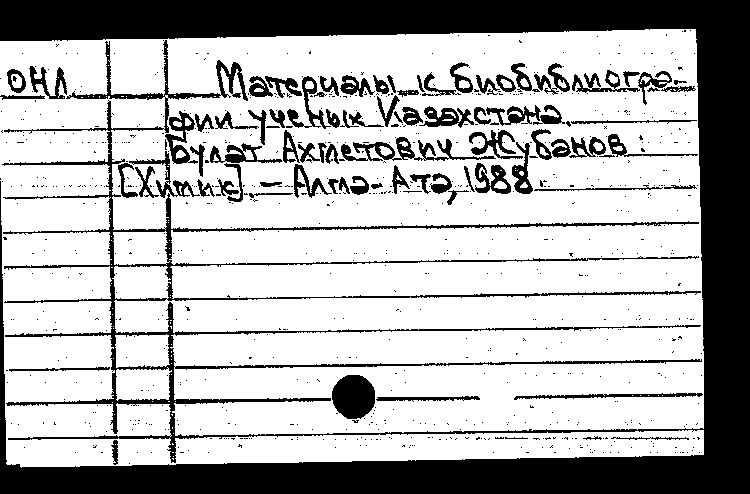 ОНЛ Материалы к биобиблиогра-
фии ученых Казахстана.
Булат Ахметович Жубанов:
[Химик]. – Алма-Ата, 1988.